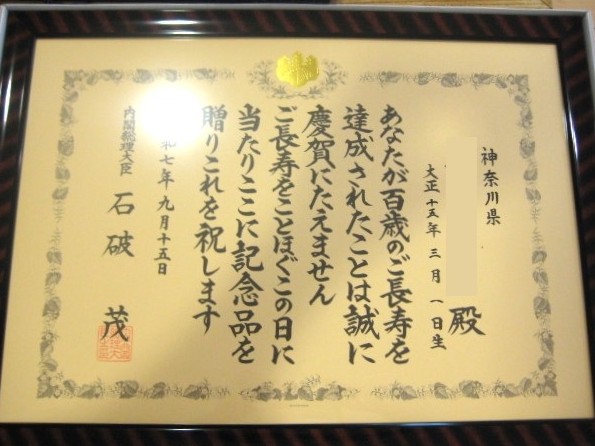 神奈川県
殿
大正十五年三月一日生
あなたが百歳のご長寿を
達成されたことは誠に
慶賀にたえません
ご長寿をことほぐこの日に
当たりここに記念品を
贈りこれを祝します
和七年九月十五日
内閣総理大臣
石破茂